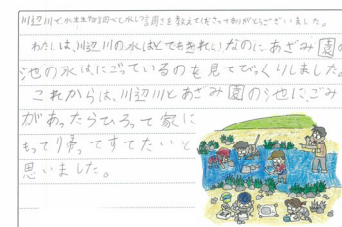 川辺川で水生生物調べと水しつ調さを教えてくださってありがとうございました。
わたしは、川辺川の水はとてもきれいなのに、あざみ園の
池の水は、にごっているのを見てびっくりしました。
これからは、川辺川とあざみ園の池に、ごみ
があったらひろって家に
もって帰ってすてたいと
思いました。